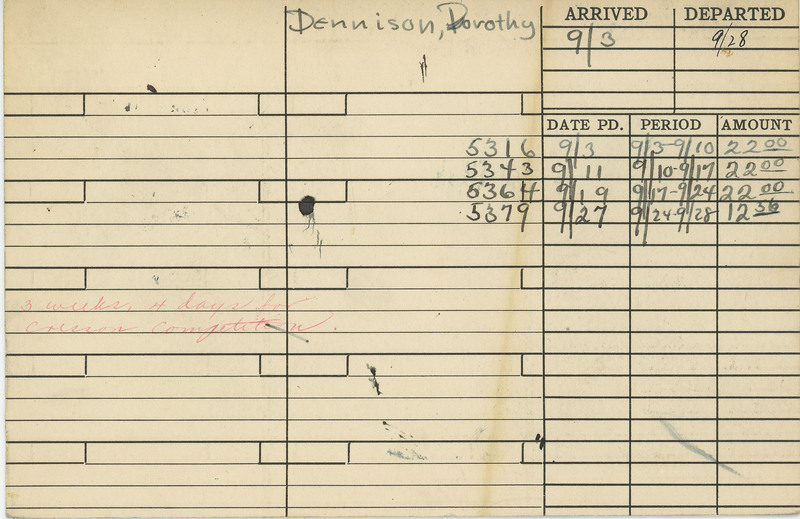 Dennison, Dorothy
ARRIVED DEPARTED
9/3 9/28
DATE PD. PERIOD AMOUNT
5316 9/3 9/3-9/10 22 00
5343 9/11 9/10-9/17 22 00
5364 9/19 9/17-9/24 22 00
5379 9/27 9/24-9/28 12 56
3 weeks, 4 days for
competition.